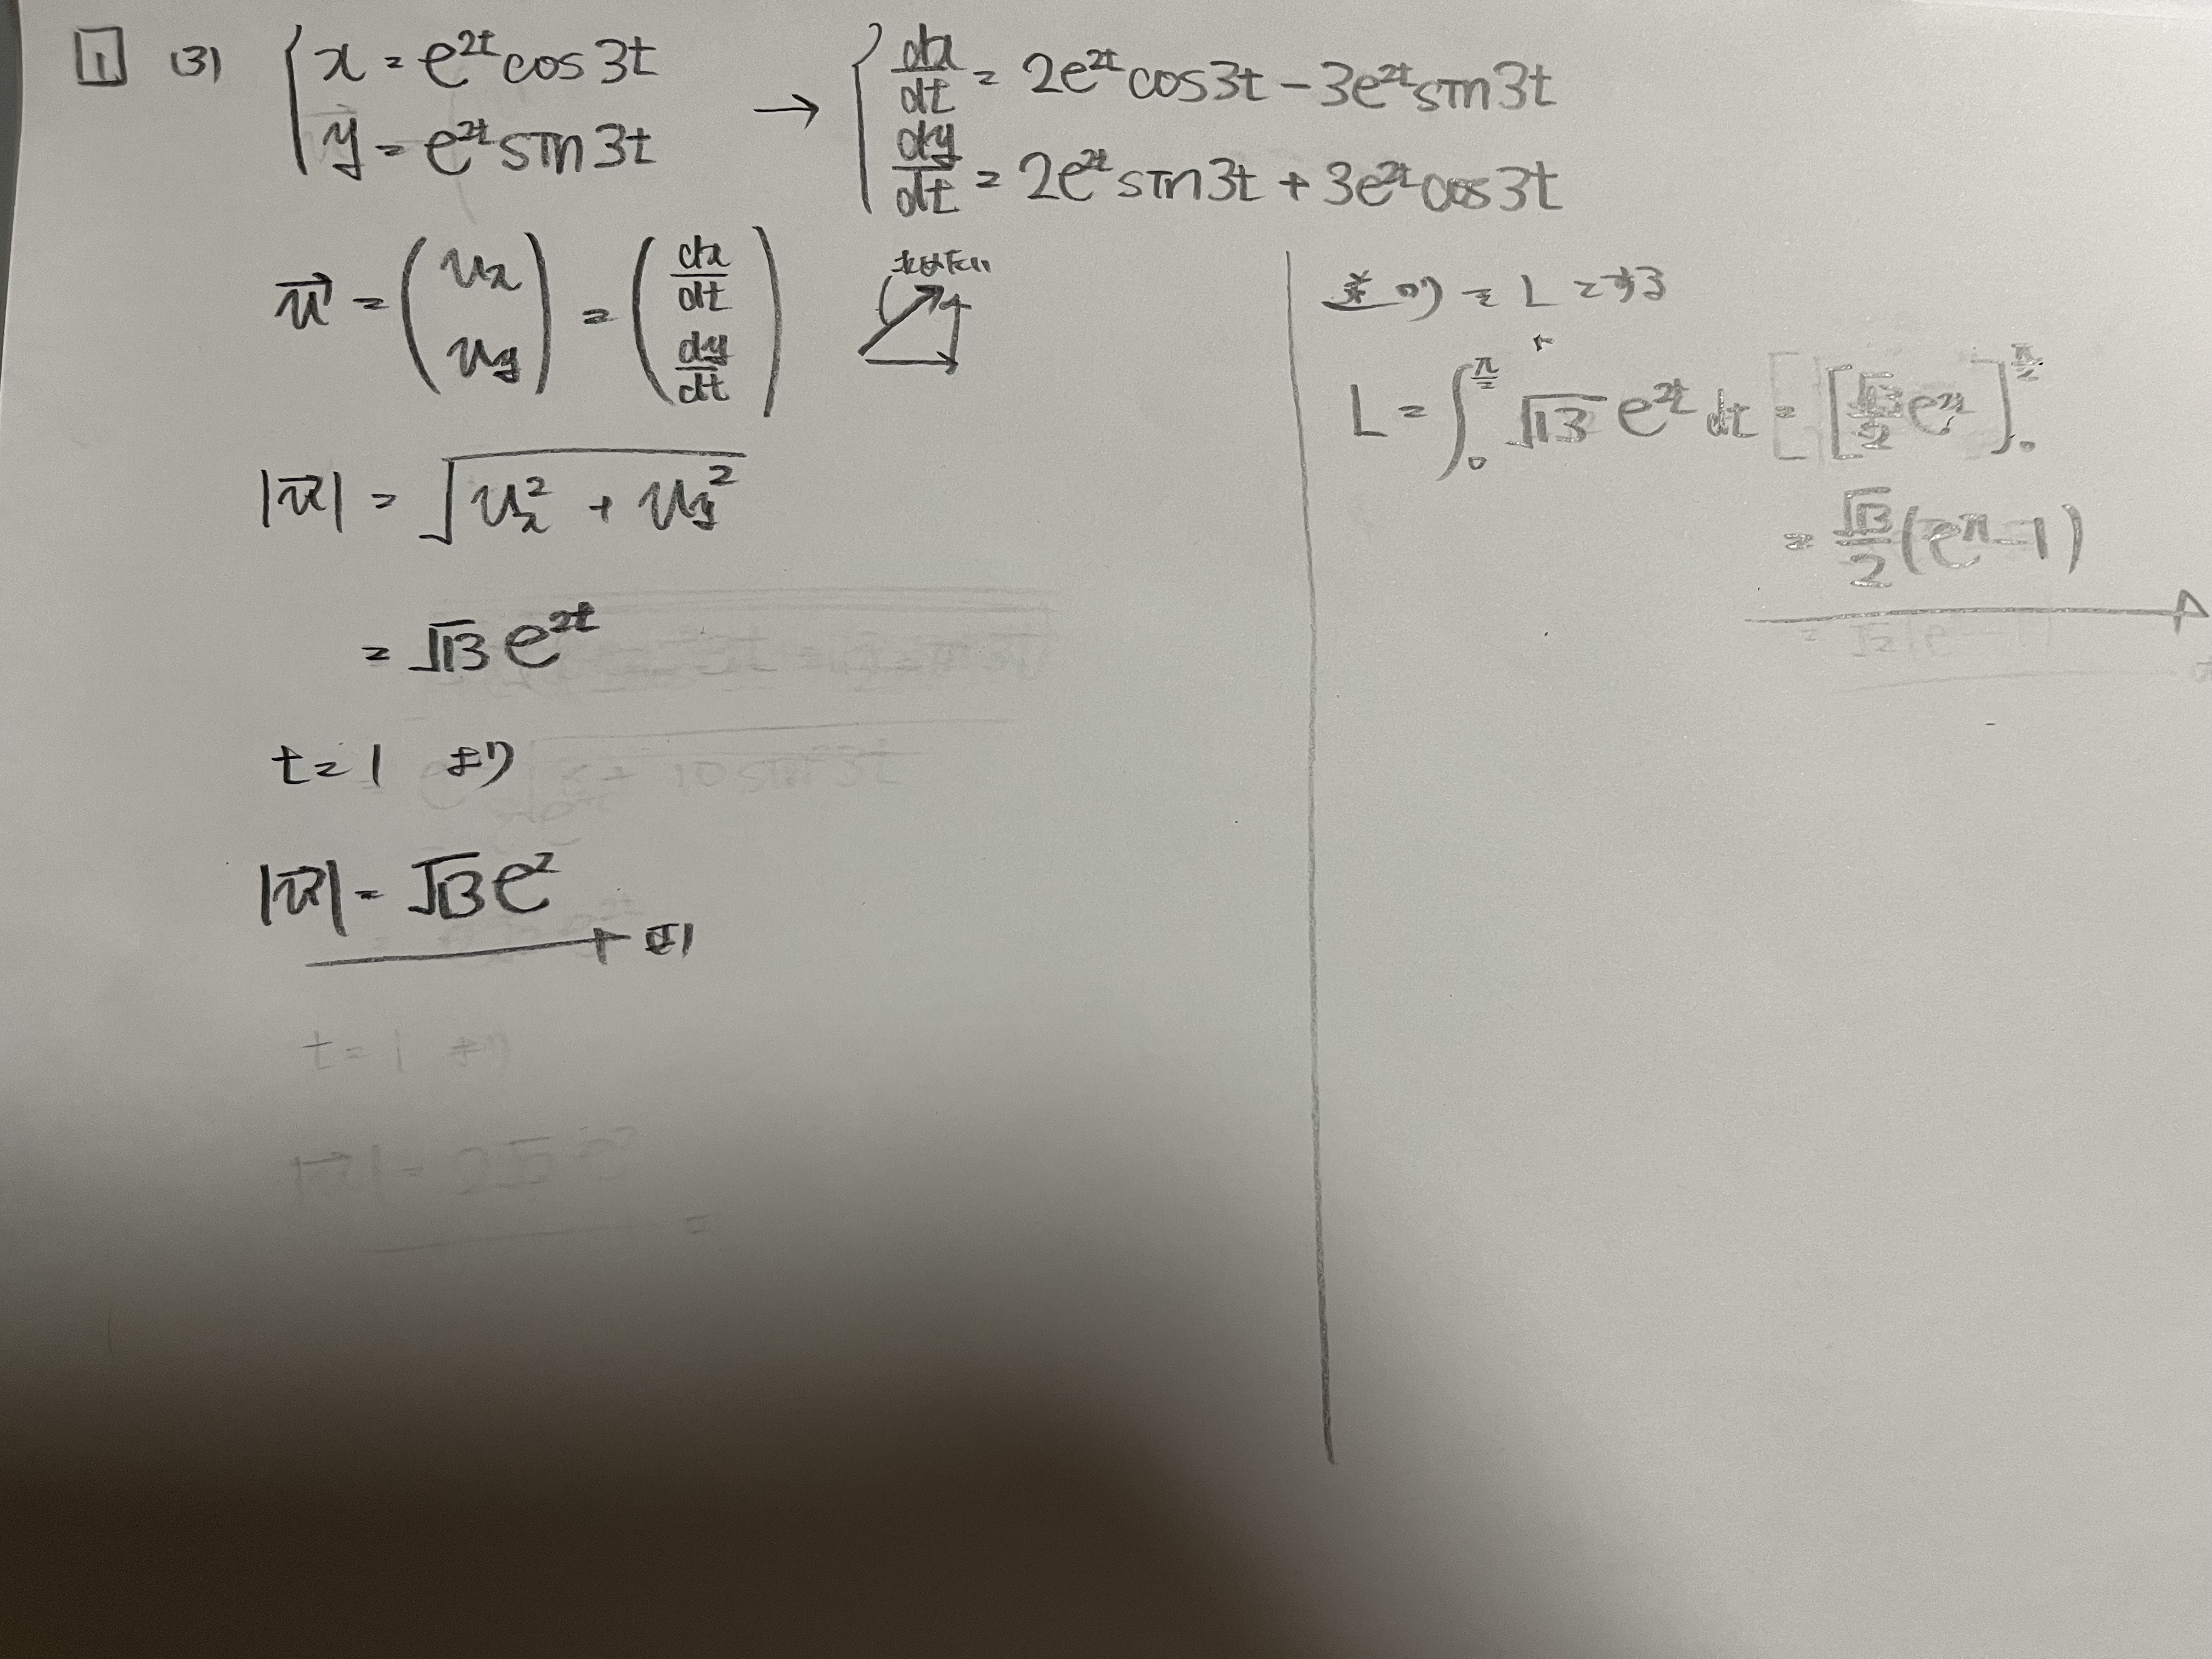 1 (3) { x = e^{2t} cos 3t
y = e^{2t} sin 3t
→ { dx/dt = 2e^{2t} cos 3t − 3e^{2t} sin 3t
dy/dt = 2e^{2t} sin 3t + 3e^{2t} cos 3t
v⃗ = (v_x v_y) = (dx/dt dy/dt) 求めたい
|v⃗| = √(v_x² + v_y²)
= √13 e^{2t}
t = 1 より
|v⃗| = √13 e²
道のり = L とする
L = ∫_0^{π/2} √13 e^{2t} dt = [√13/2 e^{2t}]_0^{π/2}
= √13/2 (e^π − 1)
t = 1 より